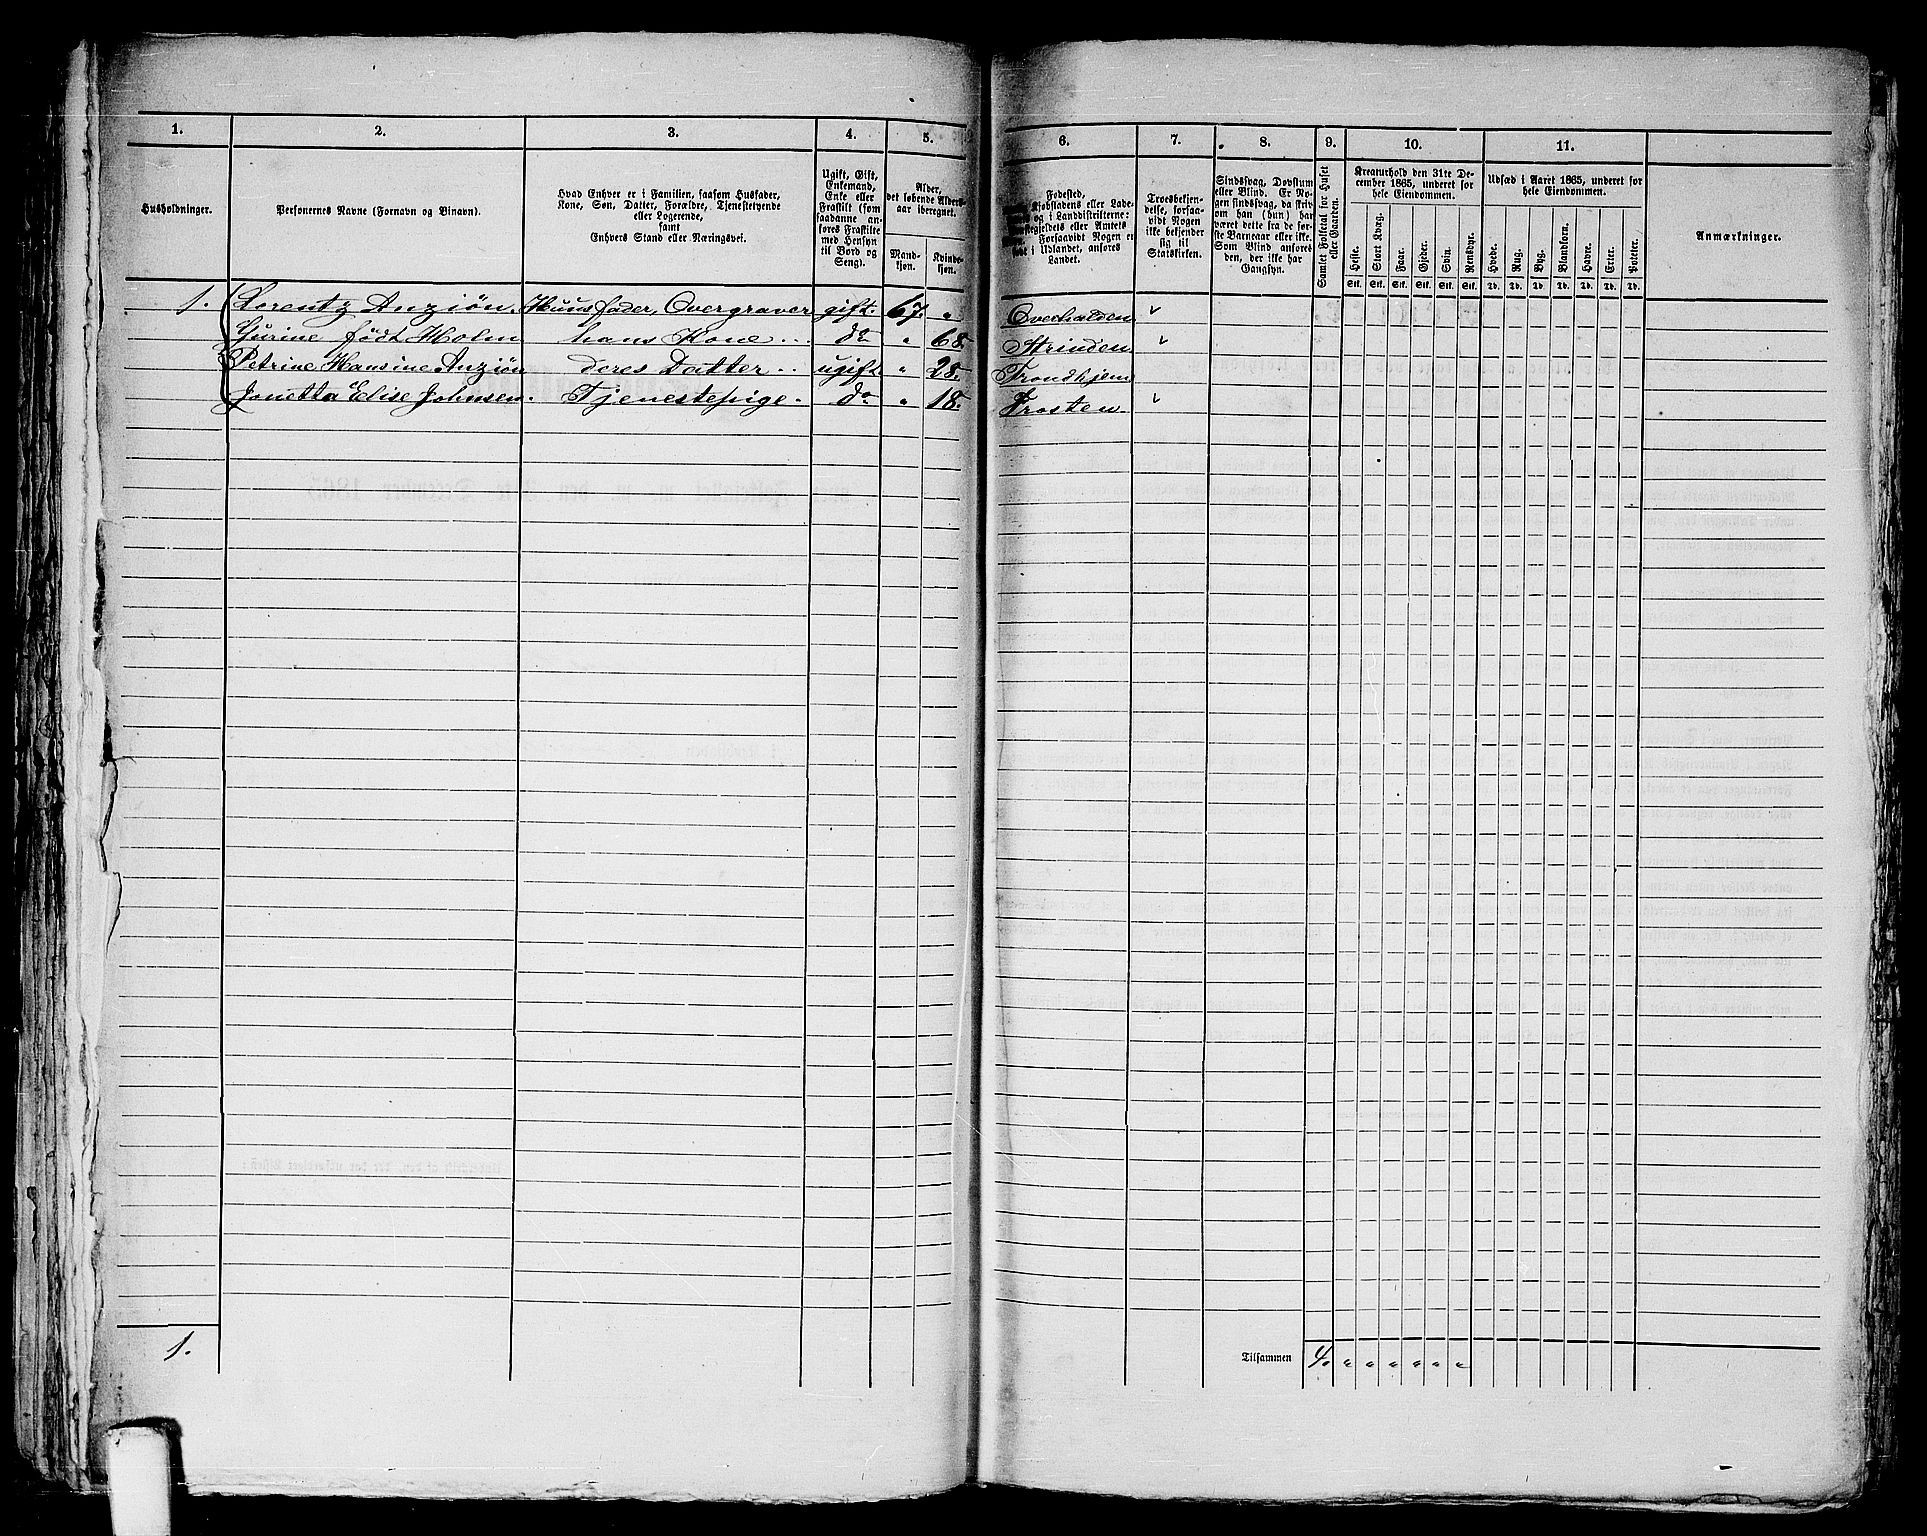 1. 2. 3. 4. 5. 6. 7. 8. 9. 10. 11.
Husholdninger.
Personernes Navne (Fornavn og Binavn).
Hvad Enhver er i Familien, saasom Husfader,
Kone, Søn, Datter, Forældre, Tjenestetyende
eller Logerende,
samt
Enhvers Stand eller Næringsvei.
Ugift, Gift,
Enkemand,
Enke eller
Fraskilt (som
saadanne an-
føres Fraskilte
med Hensyn
til Bord og
Seng).
Alder,
det løbende Alders-
aar iberegnet.
Mand-
kjøn.
Kvinde-
kjøn.
Fødested,
Kjøbstadens eller Lade-
og i Landdistrikterne:
stegjeldets eller Amtets
Forsaavidt Nogen er
i Udlandet, anføres
Landet.
Troesbekjen-
delse, forsaa-
vidt Nogen
ikke bekjender
sig til
Statskirken.
Sindssvag, Døvstum
eller Blind. Er No-
gen sindssvag, da skriv
om han (hun) har
været dette fra de før-
ste Barneaar eller ikke.
Som Blind anføres
den, der ikke har
Gangsyn.
Samlet Folketal for Huset
eller Gaarden.
Kreaturhold den 31te De-
cember 1865, underet for
hele Eiendommen.
Heste. Stort Kvæg. Faar. Gjeder. Svin. Rensdyr.
Stk. Stk. Stk. Stk. Stk. Stk.
Udsæd i Aaret 1865, underet for
hele Eiendommen.
Hvede. Rug. Byg. Blandkorn. Havre. Erter. Poteter.
Td. Td. Td. Td. Td. Td. Td.
Anmærkninger.
1. Lorentz Anziøn. Huusfader, Overgraver gift. 67. " Overhalden
Gurine født Holm hans Kone .. do " 68. Strinden
Petrine Hansine Anziøn deres Datter .. ugift " 28. Trondhjem
Jonetta Elise Johnsen. Tjenestepige. do " 18. Frosten
1. Tilsammen 4. " " " " " "